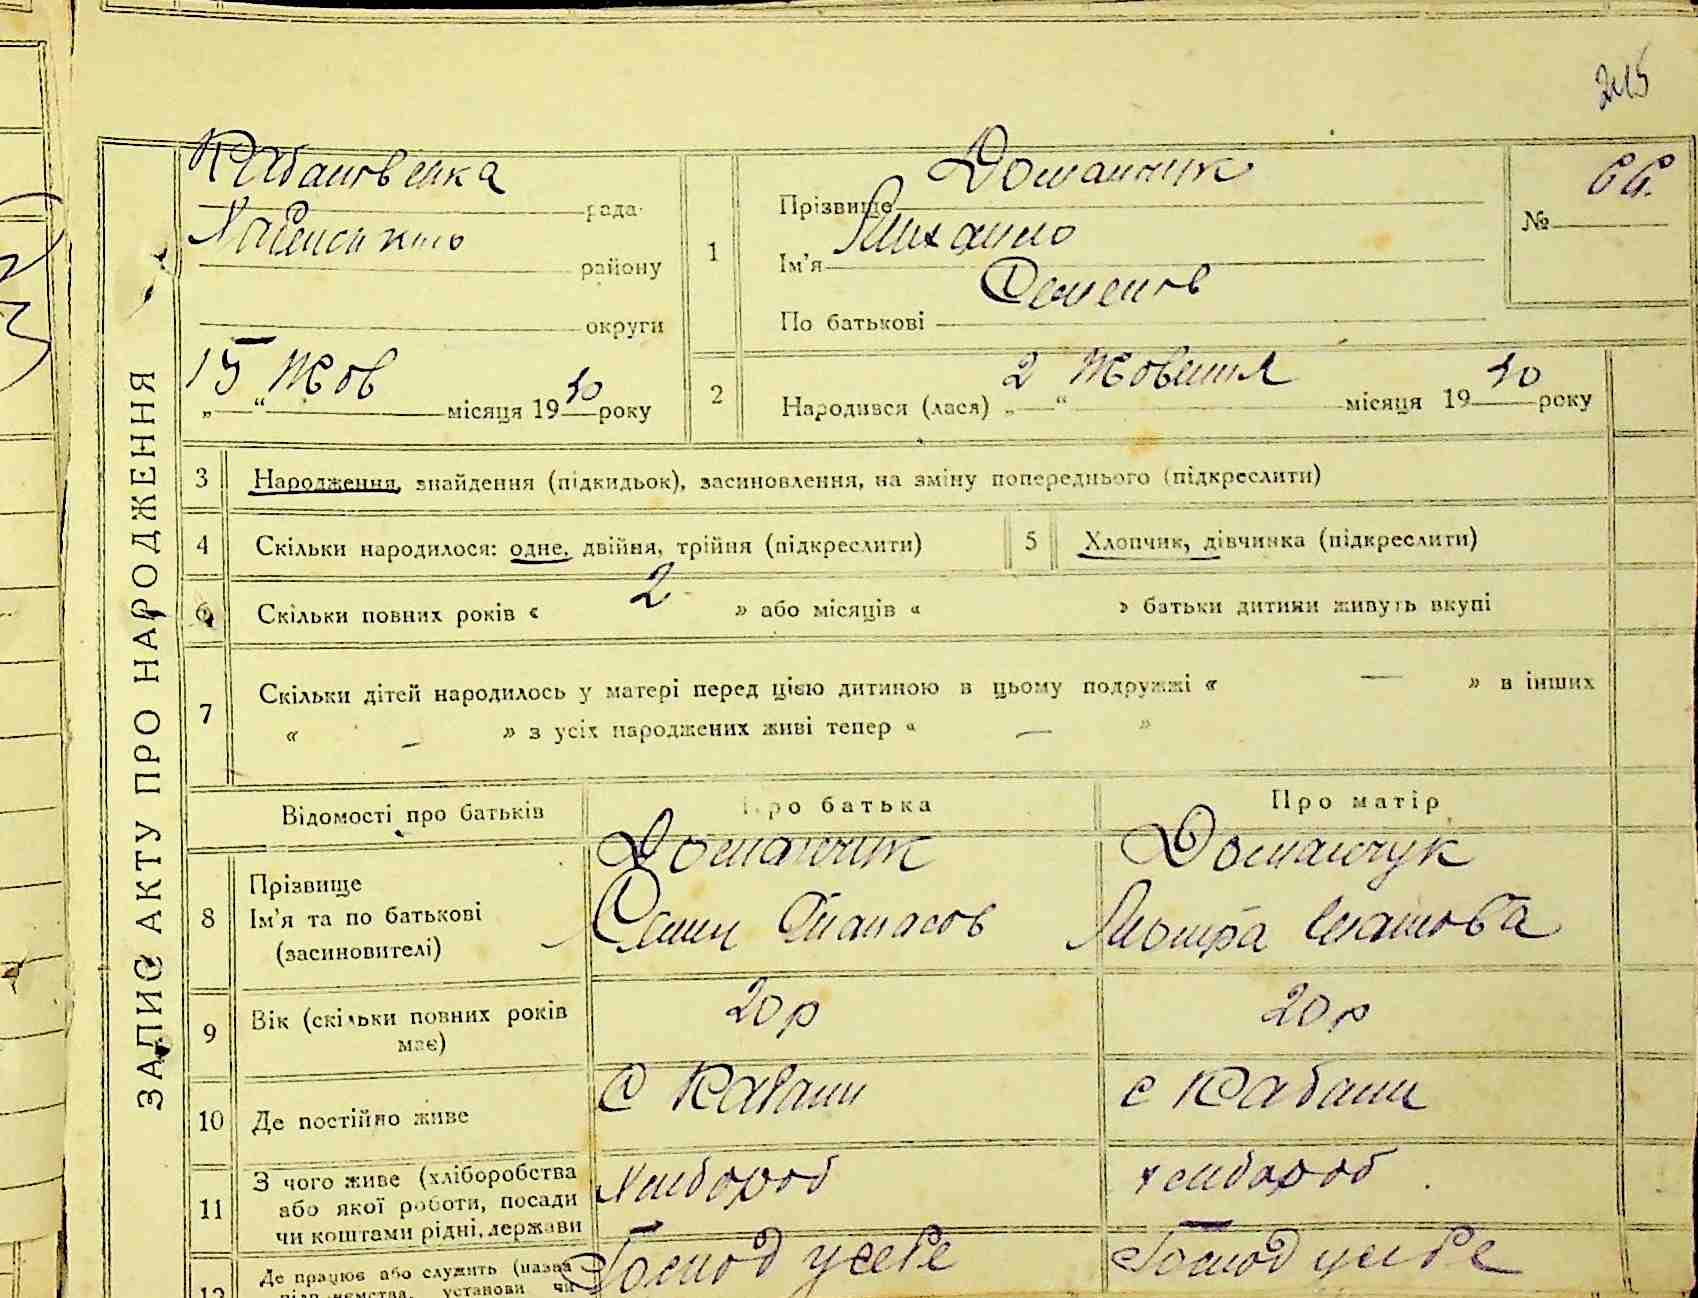 215
ЗАПИС АКТУ ПРО НАРОДЖЕННЯ
рада
району
округи
15 Жов
„—“ місяця 1930 року
1
Прізвище Доманчик
Ім'я Михайло
По батькові Семенов
№ 66.
2
Народився (лася) „2“ Жовтня місяця 1930 року
3 Народження, знайдення (підкидьок), засиновлення, на зміну попереднього (підкреслити)
4 Скільки народилося: одне, двійня, трійня (підкреслити)
5 Хлопчик, дівчинка (підкреслити)
6 Скільки повних років « 2 » або місяців « » батьки дитини живуть вкупі
7 Скільки дітей народилось у матері перед цією дитиною в цьому подружжі « — » в інших
« — » з усіх народжених живі тепер « — »
Відомості про батьків
Про батька
Про матір
8
Прізвище
Ім'я та по батькові
(засиновителі)
Доманчик
Семен Панасов
Доманчук
9 Вік (скільки повних років
має)
20 р
20 р
10 Де постійно живе
С Кабани
с Кабани
11 З чого живе (хліборобства
або якої роботи, посади
чи коштами рідні, держави
Хлібороб
хлібороб
12 Де працює або служить (назва
підприємства, установи чи
Господ у себе
Господ у себе